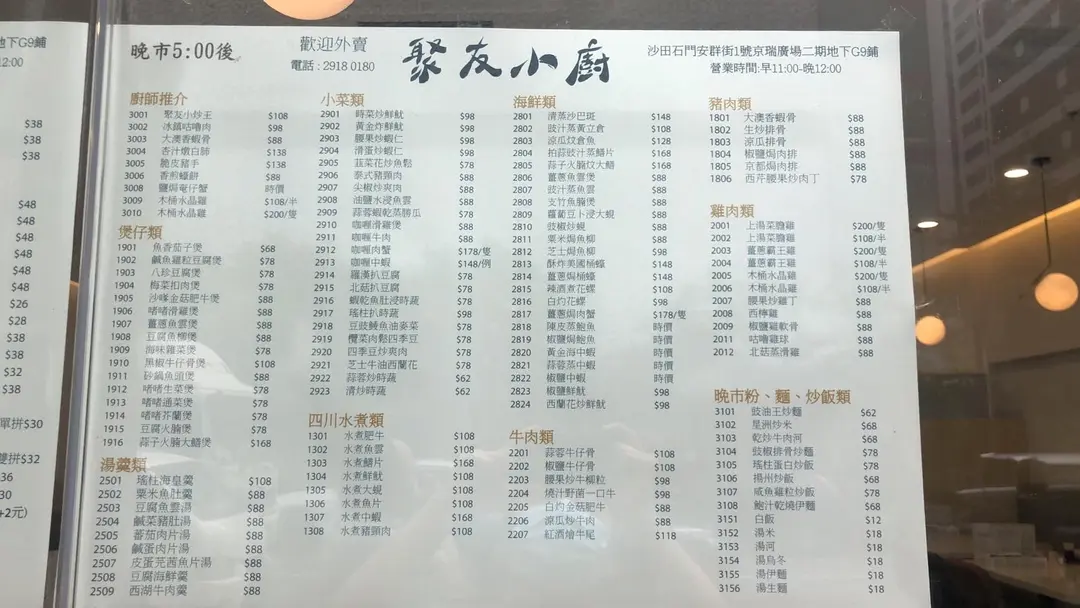 地下G9鋪
12:00
$38
$38
$38
$48
$48
$48
$48
$48
$48
$26
$28
$38
$38
$32
$38
單拼$30
雙拼$32
36
30
+2元)
晚市5:00後
歡迎外賣
電話 : 2918 0180
聚友小廚
沙田石門安群街1號京瑞廣場二期地下G9鋪
營業時間:早11:00-晚12:00
廚師推介
3001 聚友小炒王 $108
3002 冰鎮咕嚕肉 $98
3003 大澳香蝦骨 $88
3004 杏汁燉白肺 $138
3005 脆皮豬手 $138
3006 香煎蠔餅 $88
3008 鹽焗奄仔蟹 時價
3009 木桶水晶雞 $108/半
3010 木桶水晶雞 $200/隻
煲仔類
1901 魚香茄子煲 $68
1902 鹹魚雞粒豆腐煲 $78
1903 八珍豆腐煲 $78
1904 梅菜扣肉煲 $78
1905 沙嗲金菇肥牛煲 $88
1906 啫啫滑雞煲 $88
1907 薑蔥魚雲煲 $88
1908 豆腐魚柳煲 $88
1909 海味雜菜煲 $78
1910 黑椒牛仔骨煲 $108
1911 砂鍋魚頭煲 $88
1912 啫啫生菜煲 $78
1913 啫啫通菜煲 $78
1914 啫啫芥蘭煲 $78
1915 豆腐火腩煲 $78
1916 蒜子火腩大鱔煲 $168
湯羹類
2501 瑤柱海皇羹 $108
2502 粟米魚肚羹 $88
2503 豆腐魚雲湯 $88
2504 鹹菜豬肚湯 $88
2505 蕃茄肉片湯 $88
2506 鹹蛋肉片湯 $88
2507 皮蛋芫茜魚片湯 $88
2508 豆腐海鮮羹 $88
2509 西湖牛肉羹 $88
小菜類
2901 時菜炒鮮魷 $98
2902 黃金炸鮮魷 $98
2903 腰果炒蝦仁 $98
2904 滑蛋炒蝦仁 $98
2905 韮菜花炒魚鬆 $78
2906 泰式豬頸肉 $88
2907 尖椒炒爽肉 $88
2908 油鹽水浸魚雲 $88
2909 蒜蓉蝦乾蒸勝瓜 $78
2910 咖喱滑雞煲 $88
2911 咖喱牛肉 $88
2912 咖喱肉蟹 $178/隻
2913 咖喱中蝦 $148/例
2914 羅漢扒豆腐 $78
2915 北菇扒豆腐 $78
2916 蝦乾魚肚浸時蔬 $78
2917 瑤柱扒時蔬 $98
2918 豆豉鯪魚油麥菜 $78
2919 欖菜肉鬆四季豆 $78
2920 四季豆炒爽肉 $78
2921 芝士牛油西蘭花 $78
2922 蒜蓉炒時蔬 $62
2923 清炒時蔬 $62
四川水煮類
1301 水煮肥牛 $108
1302 水煮魚雲 $108
1303 水煮鱔片 $168
1304 水煮鮮魷 $108
1305 水煮大蜆 $108
1306 水煮魚片 $108
1307 水煮中蝦 $168
1308 水煮豬頸肉 $108
海鮮類
2801 清蒸沙巴斑 $148
2802 豉汁蒸黃立倉 $108
2803 涼瓜炆倉魚 $128
2804 拍蒜豉汁蒸鱔片 $168
2805 蒜子火腩炆大鱔 $168
2806 薑蔥魚雲煲 $88
2807 豉汁蒸魚雲 $88
2808 支竹魚腩煲 $88
2809 蘿蔔豆卜浸大蜆 $88
2810 豉椒炒蜆 $88
2811 粟米焗魚柳 $88
2812 芝士焗魚柳 $98
2813 酥炸美國桶蠔 $148
2814 薑蔥焗桶蠔 $148
2815 辣酒煮花螺 $108
2816 白灼花螺 $98
2817 薑蔥焗肉蟹 $178/隻
2818 陳皮蒸鮑魚 時價
2819 椒鹽焗鮑魚 時價
2820 黃金海中蝦 時價
2821 蒜蓉蒸中蝦 時價
2822 椒鹽中蝦 時價
2823 椒鹽鮮魷 $98
2824 西蘭花炒鮮魷 $98
牛肉類
2201 蒜蓉牛仔骨 $108
2202 椒鹽牛仔骨 $108
2203 腰果炒牛柳粒 $98
2204 燒汁野菌一口牛 $98
2205 白灼金菇肥牛 $98
2206 涼瓜炒牛肉 $88
2207 紅酒燴牛尾 $118
豬肉類
1801 大澳香蝦骨 $88
1802 生炒排骨 $88
1803 涼瓜排骨 $88
1804 椒鹽焗肉排 $88
1805 京都焗肉排 $88
1806 西芹腰果炒肉丁 $78
雞肉類
2001 上湯菜膽雞 $200/隻
2002 上湯菜膽雞 $108/半
2003 薑蔥霸王雞 $200/隻
2004 薑蔥霸王雞 $108/半
2005 木桶水晶雞 $200/隻
2006 木桶水晶雞 $108/半
2007 腰果炒雞丁 $88
2008 西檸雞 $88
2009 椒鹽雞軟骨 $88
2011 咕嚕雞球 $88
2012 北菇蒸滑雞 $88
晚市粉、麵、炒飯類
3101 豉油王炒麵 $62
3102 星洲炒米 $68
3103 乾炒牛肉河 $68
3104 豉椒排骨炒麵 $78
3105 瑤柱蛋白炒飯 $78
3106 揚州炒飯 $68
3107 咸魚雞粒炒飯 $78
3108 鮑汁乾燒伊麵 $68
3151 白飯 $12
3152 湯米 $18
3153 湯河 $18
3154 湯烏冬 $18
3155 湯伊麵 $18
3156 湯生麵 $18